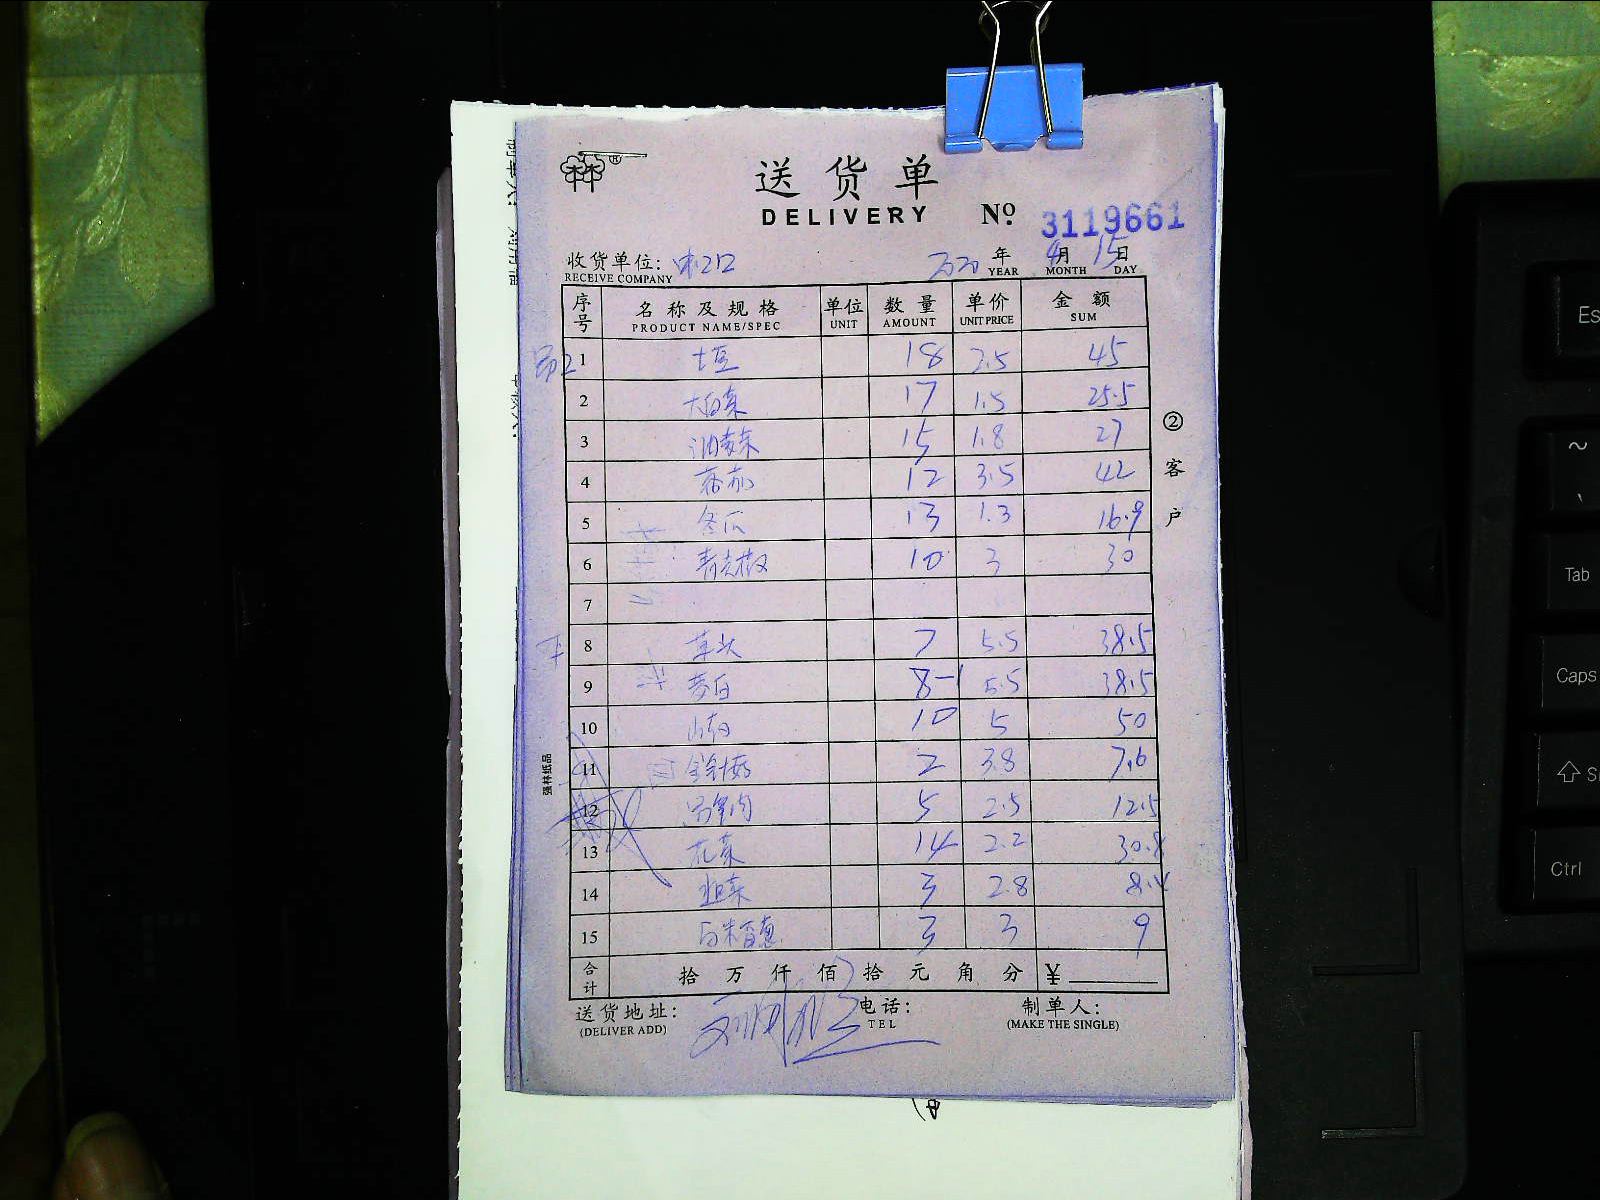 ®
送货单
DELIVERY
№ 3119661
收货单位:
2020 年 4月 15日
RECEIVE COMPANY YEAR MONTH DAY
序号 名称及规格 单位 数量 单价 金额
PRODUCT NAME/SPEC UNIT AMOUNT UNIT PRICE SUM
1 土豆 18 2.5 45
2 大白菜 17 1.5 25.5
3 油麦菜 15 1.8 27
4 蕃茄 12 3.5 42
5 冬瓜 13 1.3 16.9
6 青尖椒 10 3 30
7
8 草头 7 5.5 38.5
9 茭白 8-1 5.5 38.5
10 山药 10 5 50
11 金针菇 2 3.8 7.6
12 5 2.5 12.5
13 花菜 14 2.2 30.8
14 韭菜 3 2.8 8.4
15 香葱 3 3 9
合计 拾 万 仟 佰 拾 元 角 分 ¥
送货地址: 电话: 制单人:
(DELIVER ADD) TEL (MAKE THE SINGLE)
②客户
强林纸品
Es
~
Tab
Caps
S
Ctrl